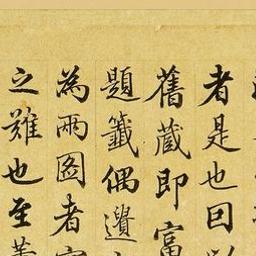 者是也回
舊蔵即富
題籤偶遺
為兩图者
之難也至